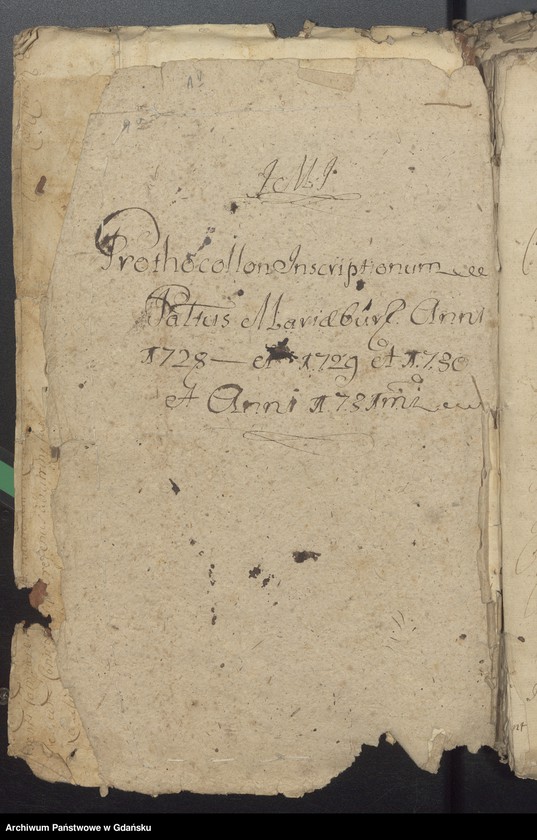 J. M. J.
Prothocollon Inscriptionum
Pattus Mariæburg. Anni
1728 — et 1729 et 1730
et Anni 1731mi
Archiwum Państwowe w Gdańsku